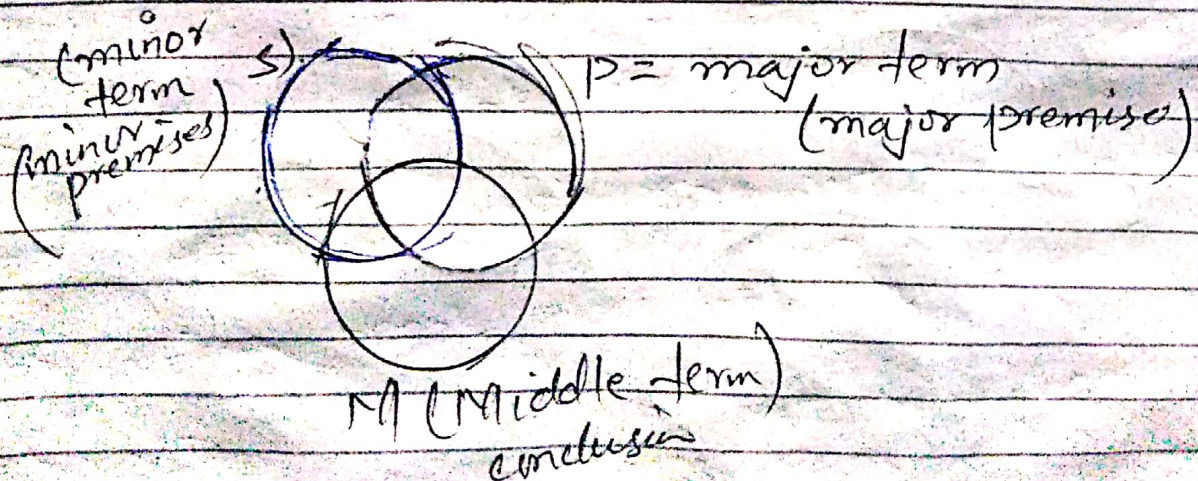 (minor
term
(minor
premises)
S)
P= major term
(major premise)
M (Middle term)
conclusion